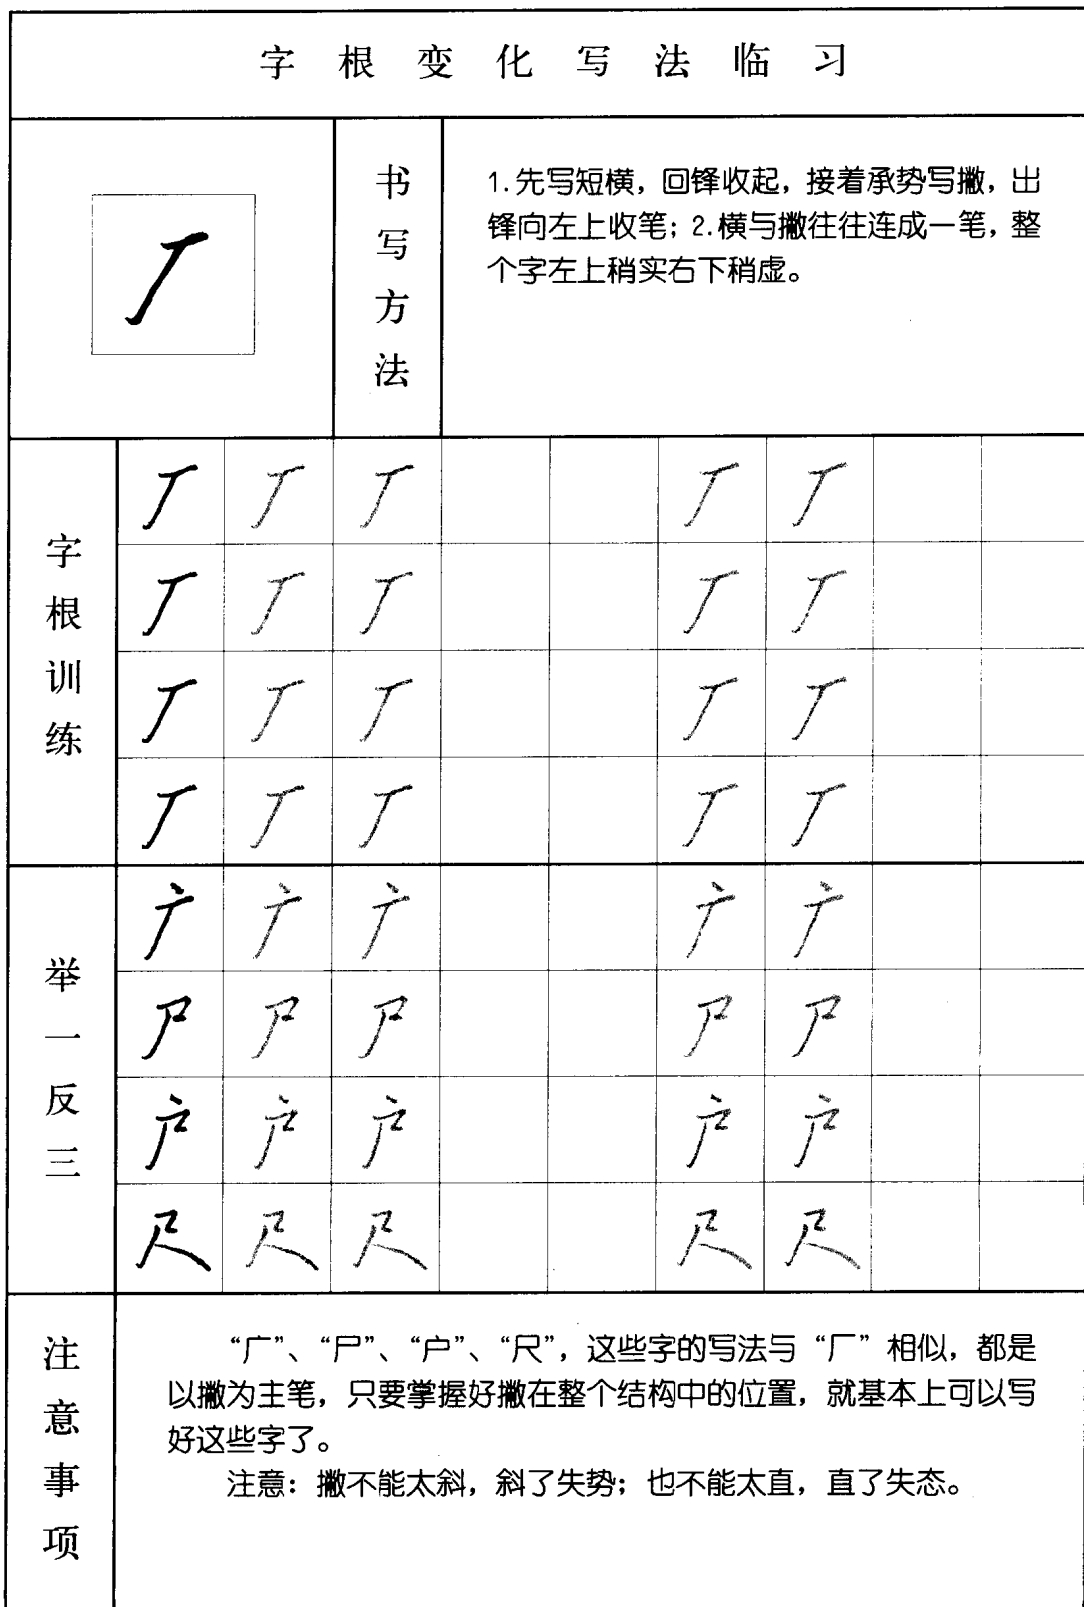 字根变化写法临习
厂
书写方法
1.先写短横，回锋收起，接着承势写撇，出
锋向左上收笔；2.横与撇往往连成一笔，整
个字左上稍实右下稍虚。
字根训练
厂 厂 厂 厂 厂
厂 厂 厂 厂 厂
厂 厂 厂 厂 厂
厂 厂 厂 厂 厂
举一反三
广 广 广 广 广
尸 尸 尸 尸 尸
户 户 户 户 户
尺 尺 尺 尺 尺
注意事项
“广”、“尸”、“户”、“尺”，这些字的写法与“厂”相似，都是
以撇为主笔，只要掌握好撇在整个结构中的位置，就基本上可以写
好这些字了。
注意：撇不能太斜，斜了失势；也不能太直，直了失态。